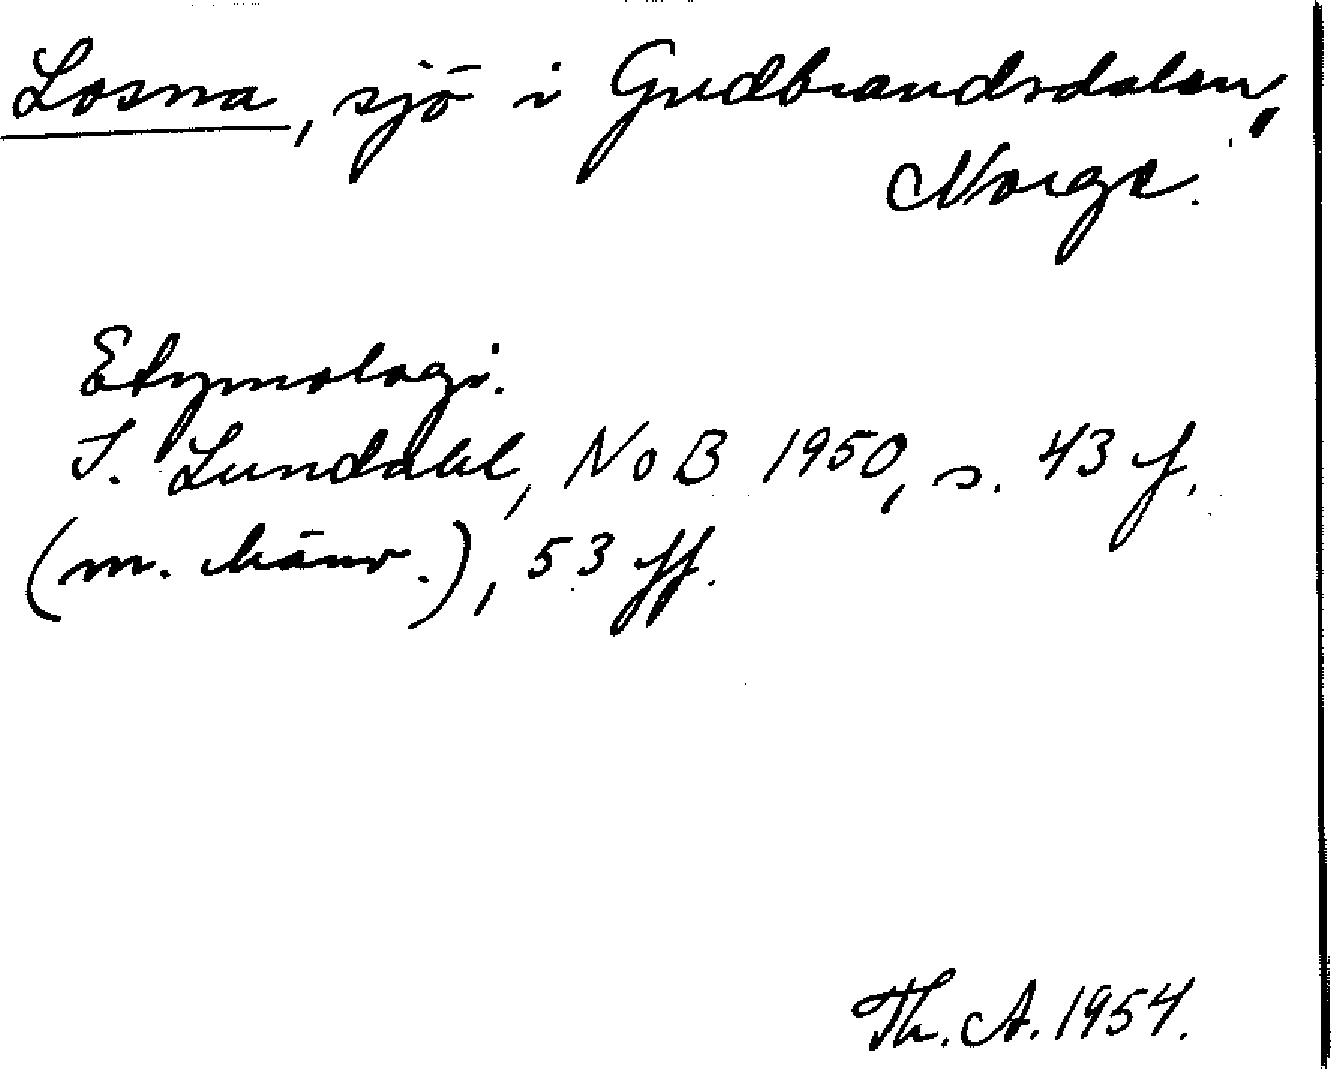 Losna, sjö i Gudbrandsdalen,
Norge.
Etymologi.
I. Lundahl, NoB 1950, s. 43 f.
(m. hänv.), 53 ff.
Th. A. 1954.